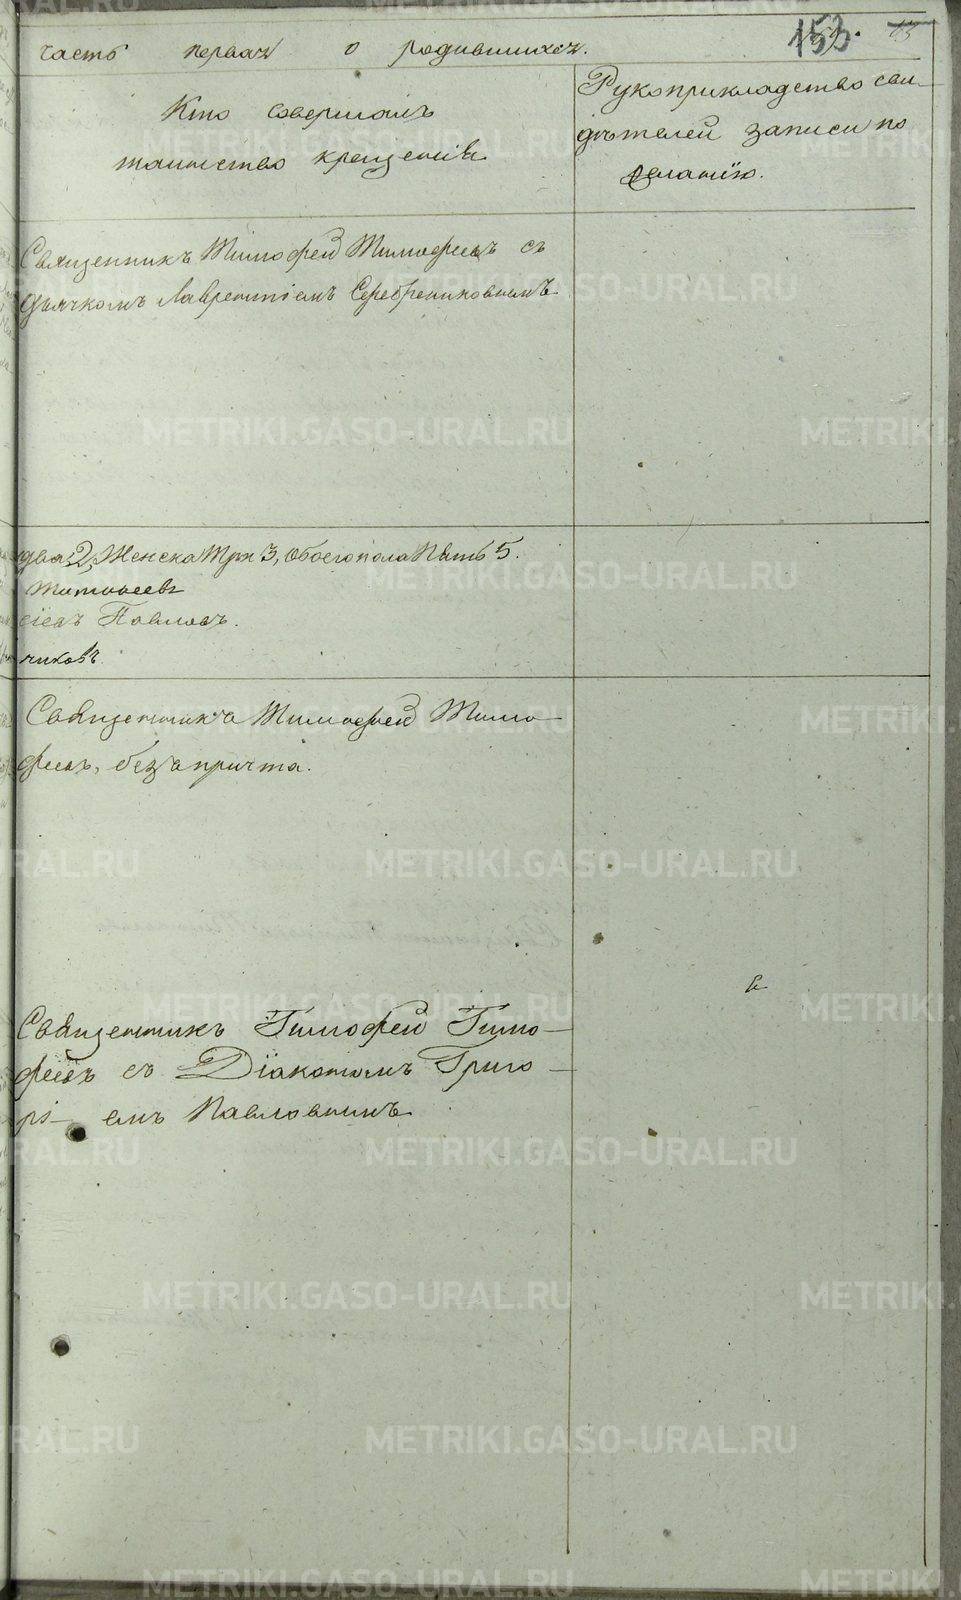 часть первая о родившихся.
153.
Кто совершалъ
таинство крещенія
Рукоприкладство сви-
дѣтелей записи по
желанію.
Священникъ Тимофей Тимофеевъ съ
дьячкомъ Лаврентіемъ Серебрениковымъ
два 2, Женска Три 3, Обоего пола Пять 5.
Тимофеевъ
Павловъ.
никовъ.
Священникъ Тимофей Тимо-
феевъ, безъ причта.
Священникъ Тимофей Тимо-
феевъ съ Діакономъ Григо-
рі-емъ Павловымъ
METRIKI.GASO-URAL.RU